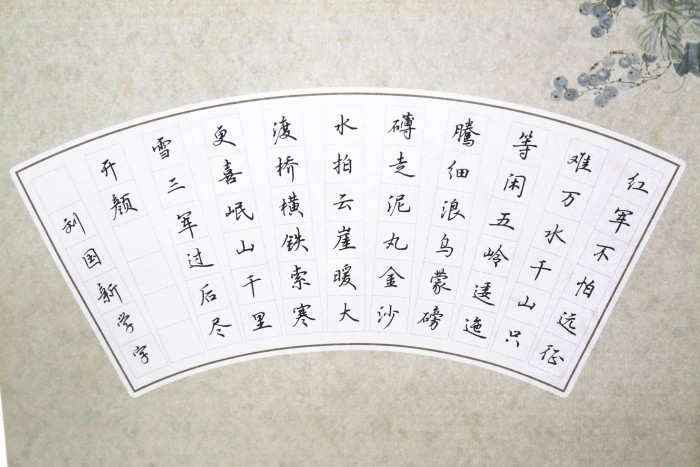 红军不怕远征
难万水千山只
等闲五岭逶迤
騰细浪乌蒙磅
礴走泥丸金沙
水拍云崖暖大
渡桥横铁索寒
更喜岷山千里
雪三军过后尽
开颜
刘国新学字